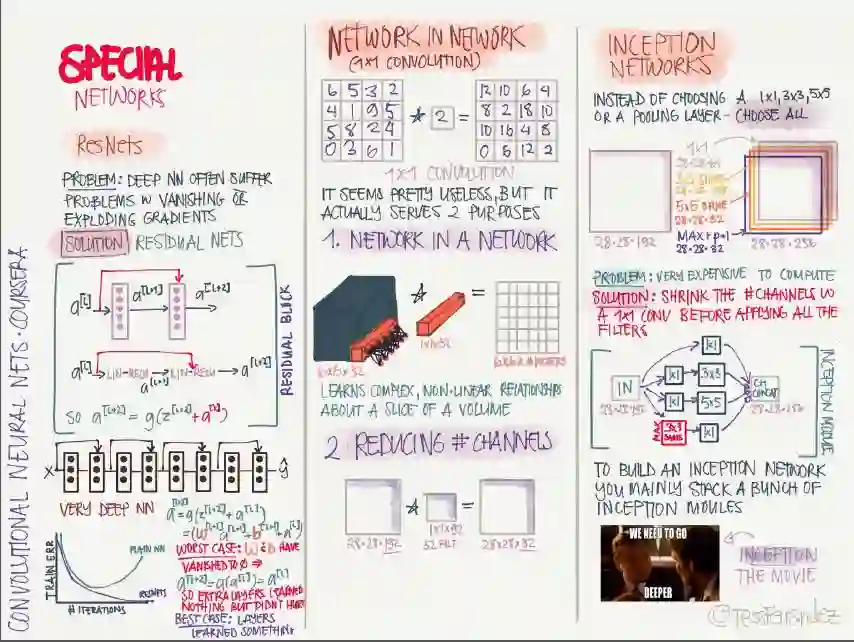 CONVOLUTIONAL NEURAL NETS · COURSERA
SPECIAL
NETWORKS
ResNets
PROBLEM: DEEP NN OFTEN SUFFER
PROBLEMS W VANISHING OR
EXPLODING GRADIENTS
SOLUTION RESIDUAL NETS
a[l] a[l+1] a[l+2]
a[l] LIN-RELU LIN-RELU a[l+2]
a[l+1]
SO a[l+2] = g(z[l+2] + a[l])
RESIDUAL BLOCK
X ŷ
VERY DEEP NN
TRAIN ERR
PLAIN NN
RESNETS
# ITERATIONS
WORST CASE: W & b HAVE
VANISHED TO 0 ⇒
a[l+2] = g(a[l]) = a[l]
SO EXTRA LAYERS LEARNED
NOTHING BUT DIDNT HURT
BEST CASE: LAYERS
LEARNED SOMETHING
NETWORK IN NETWORK
(1x1 CONVOLUTION)
6 5 3 2
4 1 9 5
5 8 2 4
0 3 6 1
* 2 =
12 10 6 4
8 2 18 10
10 16 4 8
0 6 12 2
1x1 CONVOLUTION
IT SEEMS PRETTY USELESS, BUT IT
ACTUALLY SERVES 2 PURPOSES
1. NETWORK IN A NETWORK
6x6x32
1x1x32
LEARNS COMPLEX, NON-LINEAR RELATIONSHIPS
ABOUT A SLICE OF A VOLUME
2 REDUCING # CHANNELS
28·28·192
1x1x192
32 FILT
28·28·32
INCEPTION
NETWORKS
INSTEAD OF CHOOSING A 1x1, 3x3, 5x5
OR A POOLING LAYER - CHOOSE ALL
1x1
5x5 SAME
28·28·32
MAX POOL
28·28·32
28·28·192
28·28·256
PROBLEM: VERY EXPENSIVE TO COMPUTE
SOLUTION: SHRINK THE # CHANNELS W
A 1x1 CONV BEFORE APPLYING ALL THE
FILTERS
IN
28·28·192
1x1
1x1 3x3
1x1 5x5
MAX 3x3 SAME 1x1
CH CONCAT
28·28·256
INCEPTION MODULE
TO BUILD AN INCEPTION NETWORK
YOU MAINLY STACK A BUNCH OF
INCEPTION MOULES
WE NEED TO GO
DEEPER
INCEPTION
THE MOVIE
@TessFerrandez